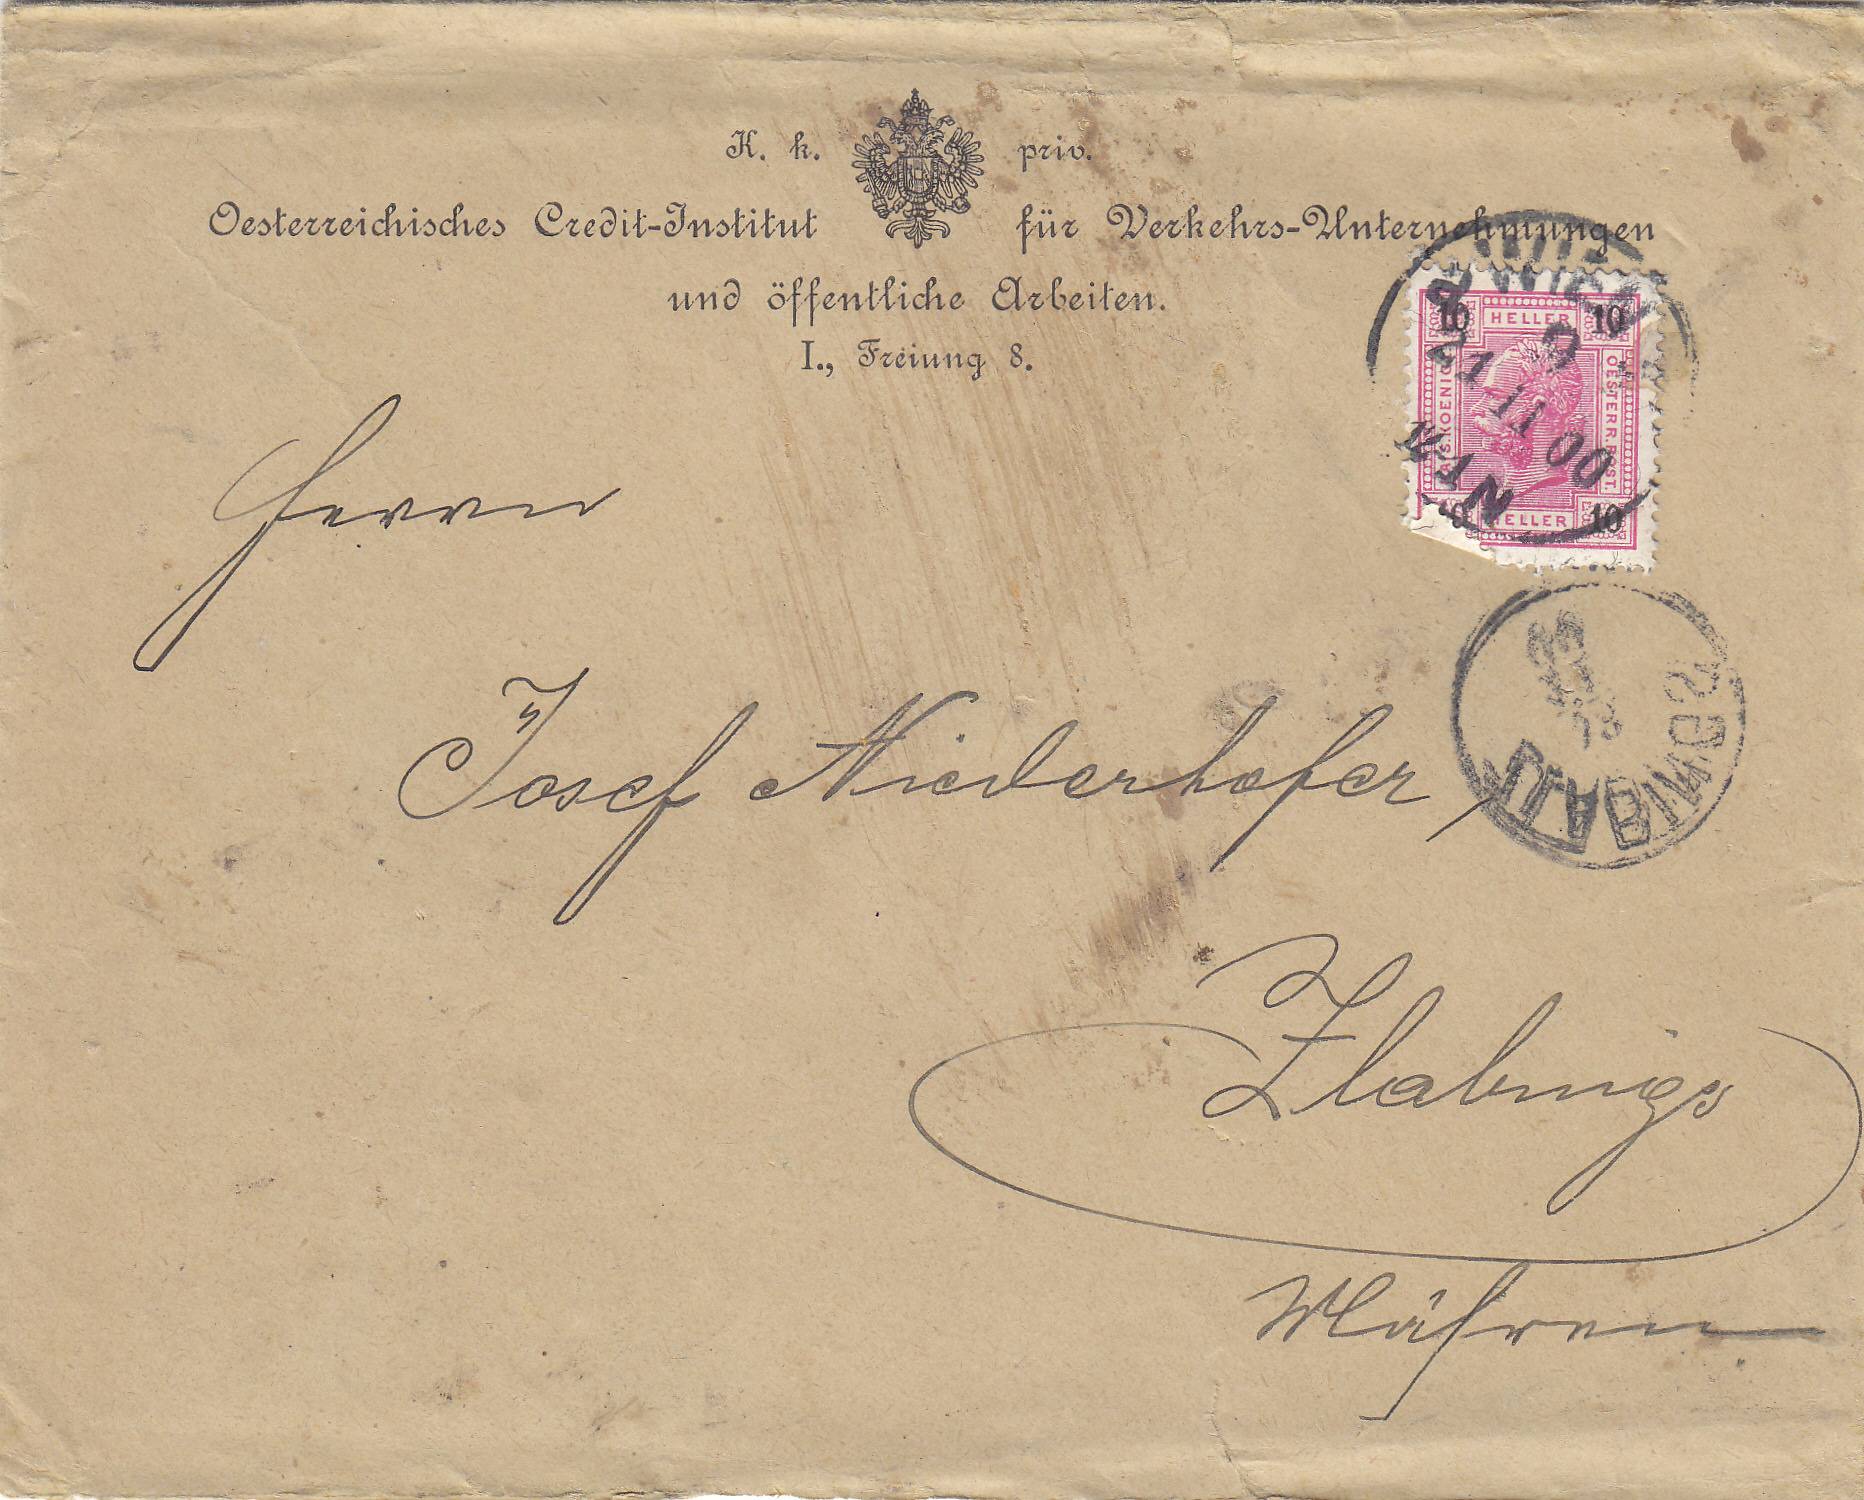 K. k. priv.
Oesterreichisches Credit-Institut für Verkehrs-Unternehmungen
und öffentliche Arbeiten.
I., Freiung 8.
10 HELLER 10
KOENIG
OESTERR. POST.
HELLER 10
WIEN
21 11 00
9
Herrn
Josef Niederhofer,
ZLABINGS
Zlabings
Mähren